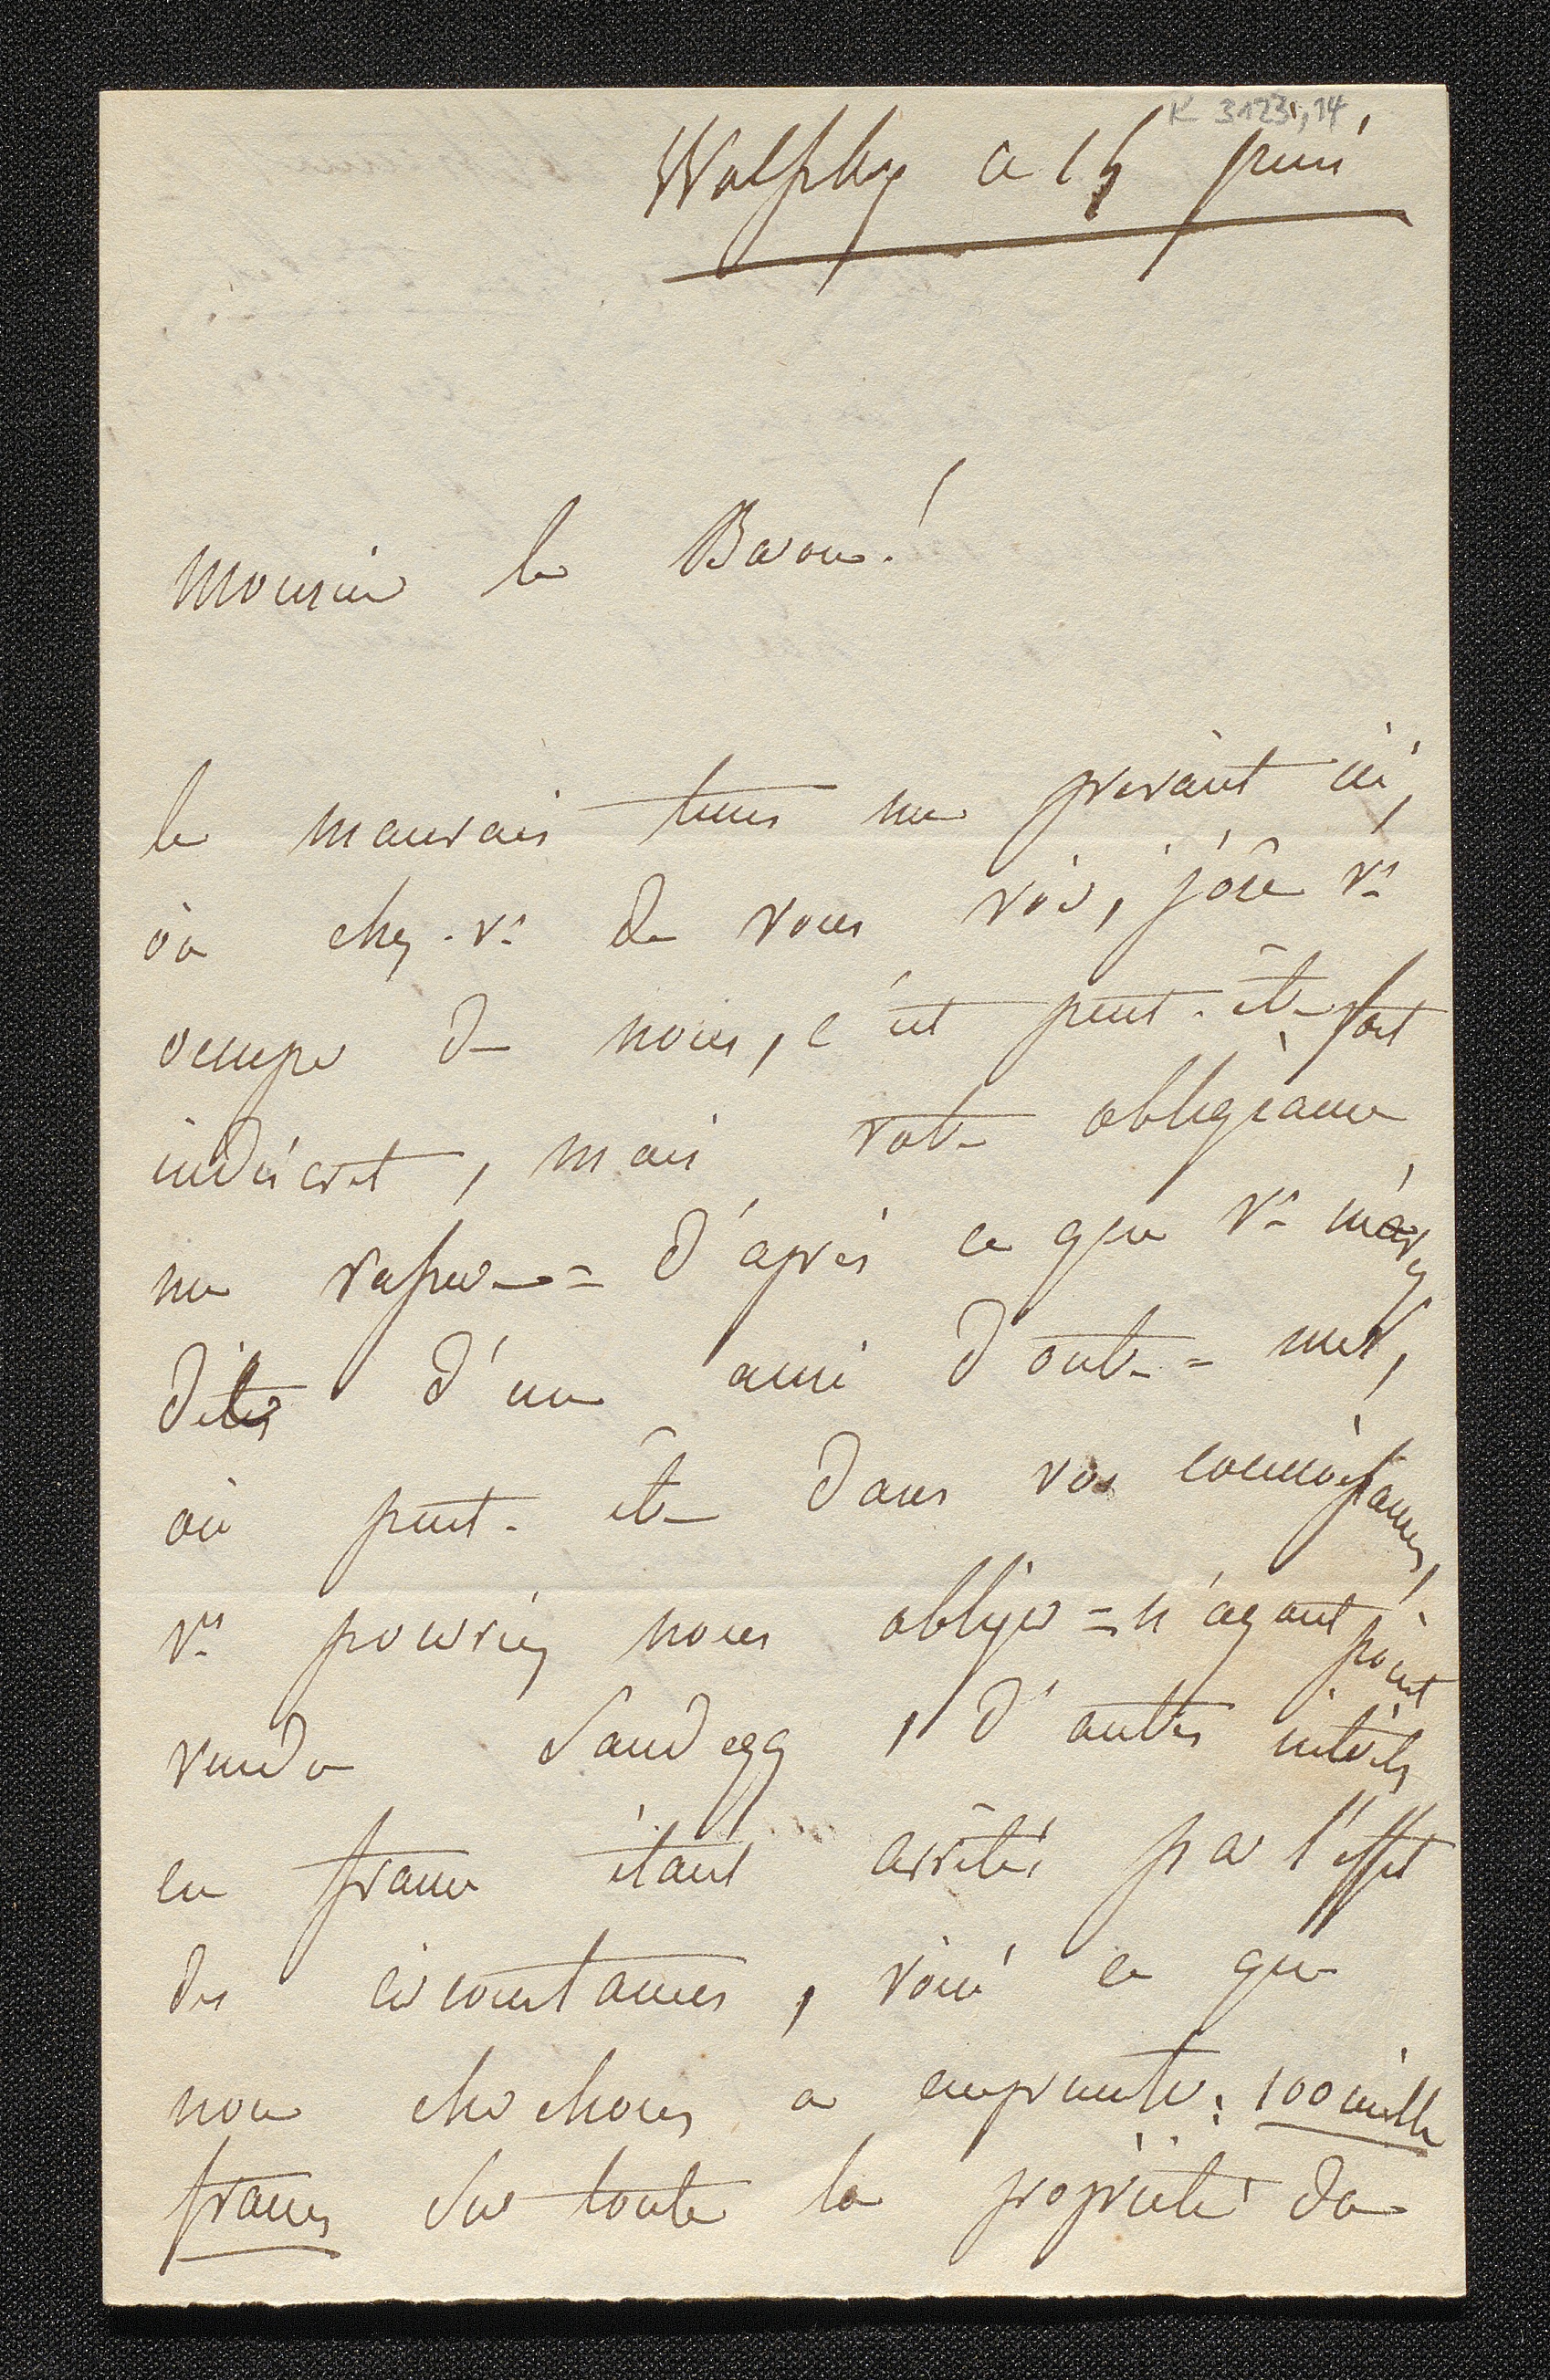 K 3123,14
Wolfsbg ce 15 juin
Monsieur le Baron!
le mauvais tems me privant ici,
où chez vs de vous voir, j'ôse vs
occuper de nous, c'est peut-être fort
indiscret, mais votre obligeance
me rassure = d'après ce que vs m'avez
dites d'un ami d'outre=mer,
où peut-être dans vos connoissances,
vs pourriez nous obliger = n'ayant point
vendu Sandegg, d'autres intérêts
en france étant arrêtés par l'effet
des circonstances, voici ce que
nous cherchons a emprunter: 100 mille
francs sur toute la propriété de